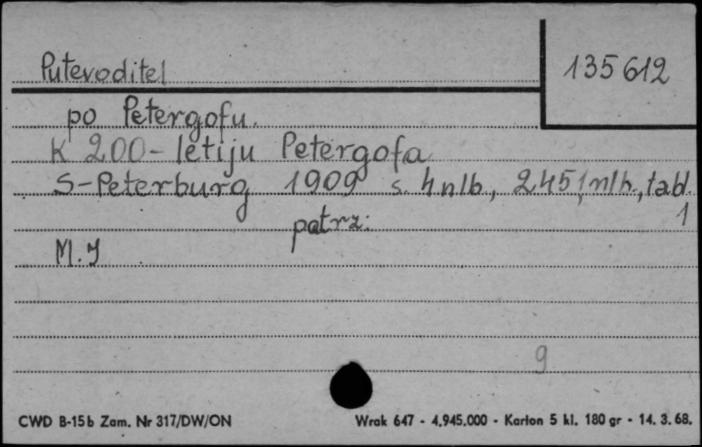 Putevoditel
135 612
po Petergofu.
K 200-letiju Petergofa
S-Peterburg 1909 s. 4 nlb., 245, 1 nlb., tabl.
1
patrz:
M. J
9
CWD B-15b Zam. Nr 317/DW/ON
Wrak 647 - 4.945.000 - Karton 5 kl. 180 gr - 14. 3. 68.